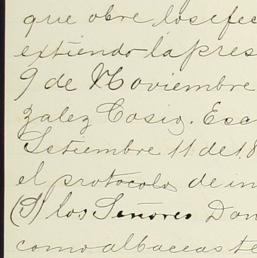 que obre los efec
extiendo la pres
9 de Noviembre
zalez Cosio. Esc
Setiembre 11 de 18
el protocolo de in
(S) los Señores Don
como albaceas te